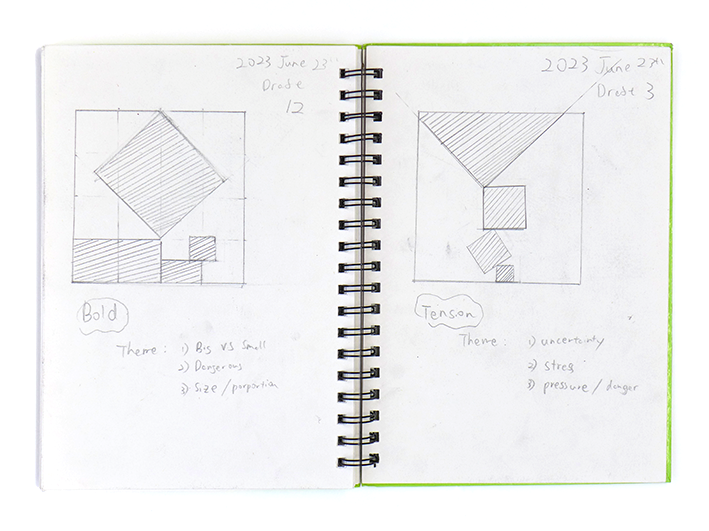 2023 June 23th
Draft
12
Bold
Theme: 1) Big VS Small
2) Dangerous
3) Size / porportion
2023 June 27th
Draft 3
Tension
Theme: 1) uncertainty
2) stress
3) pressure / danger